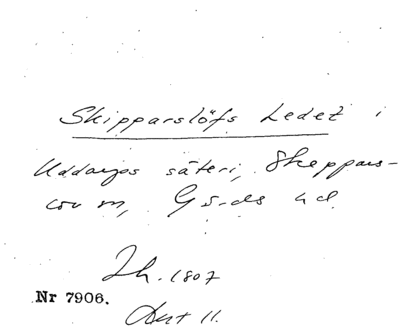 Skipparslöfs Ledet i
Uddarps säteri, Skeppars-
lov sn, Gärds hd
Lh. 1807
Nr 7906.
Akt 11.